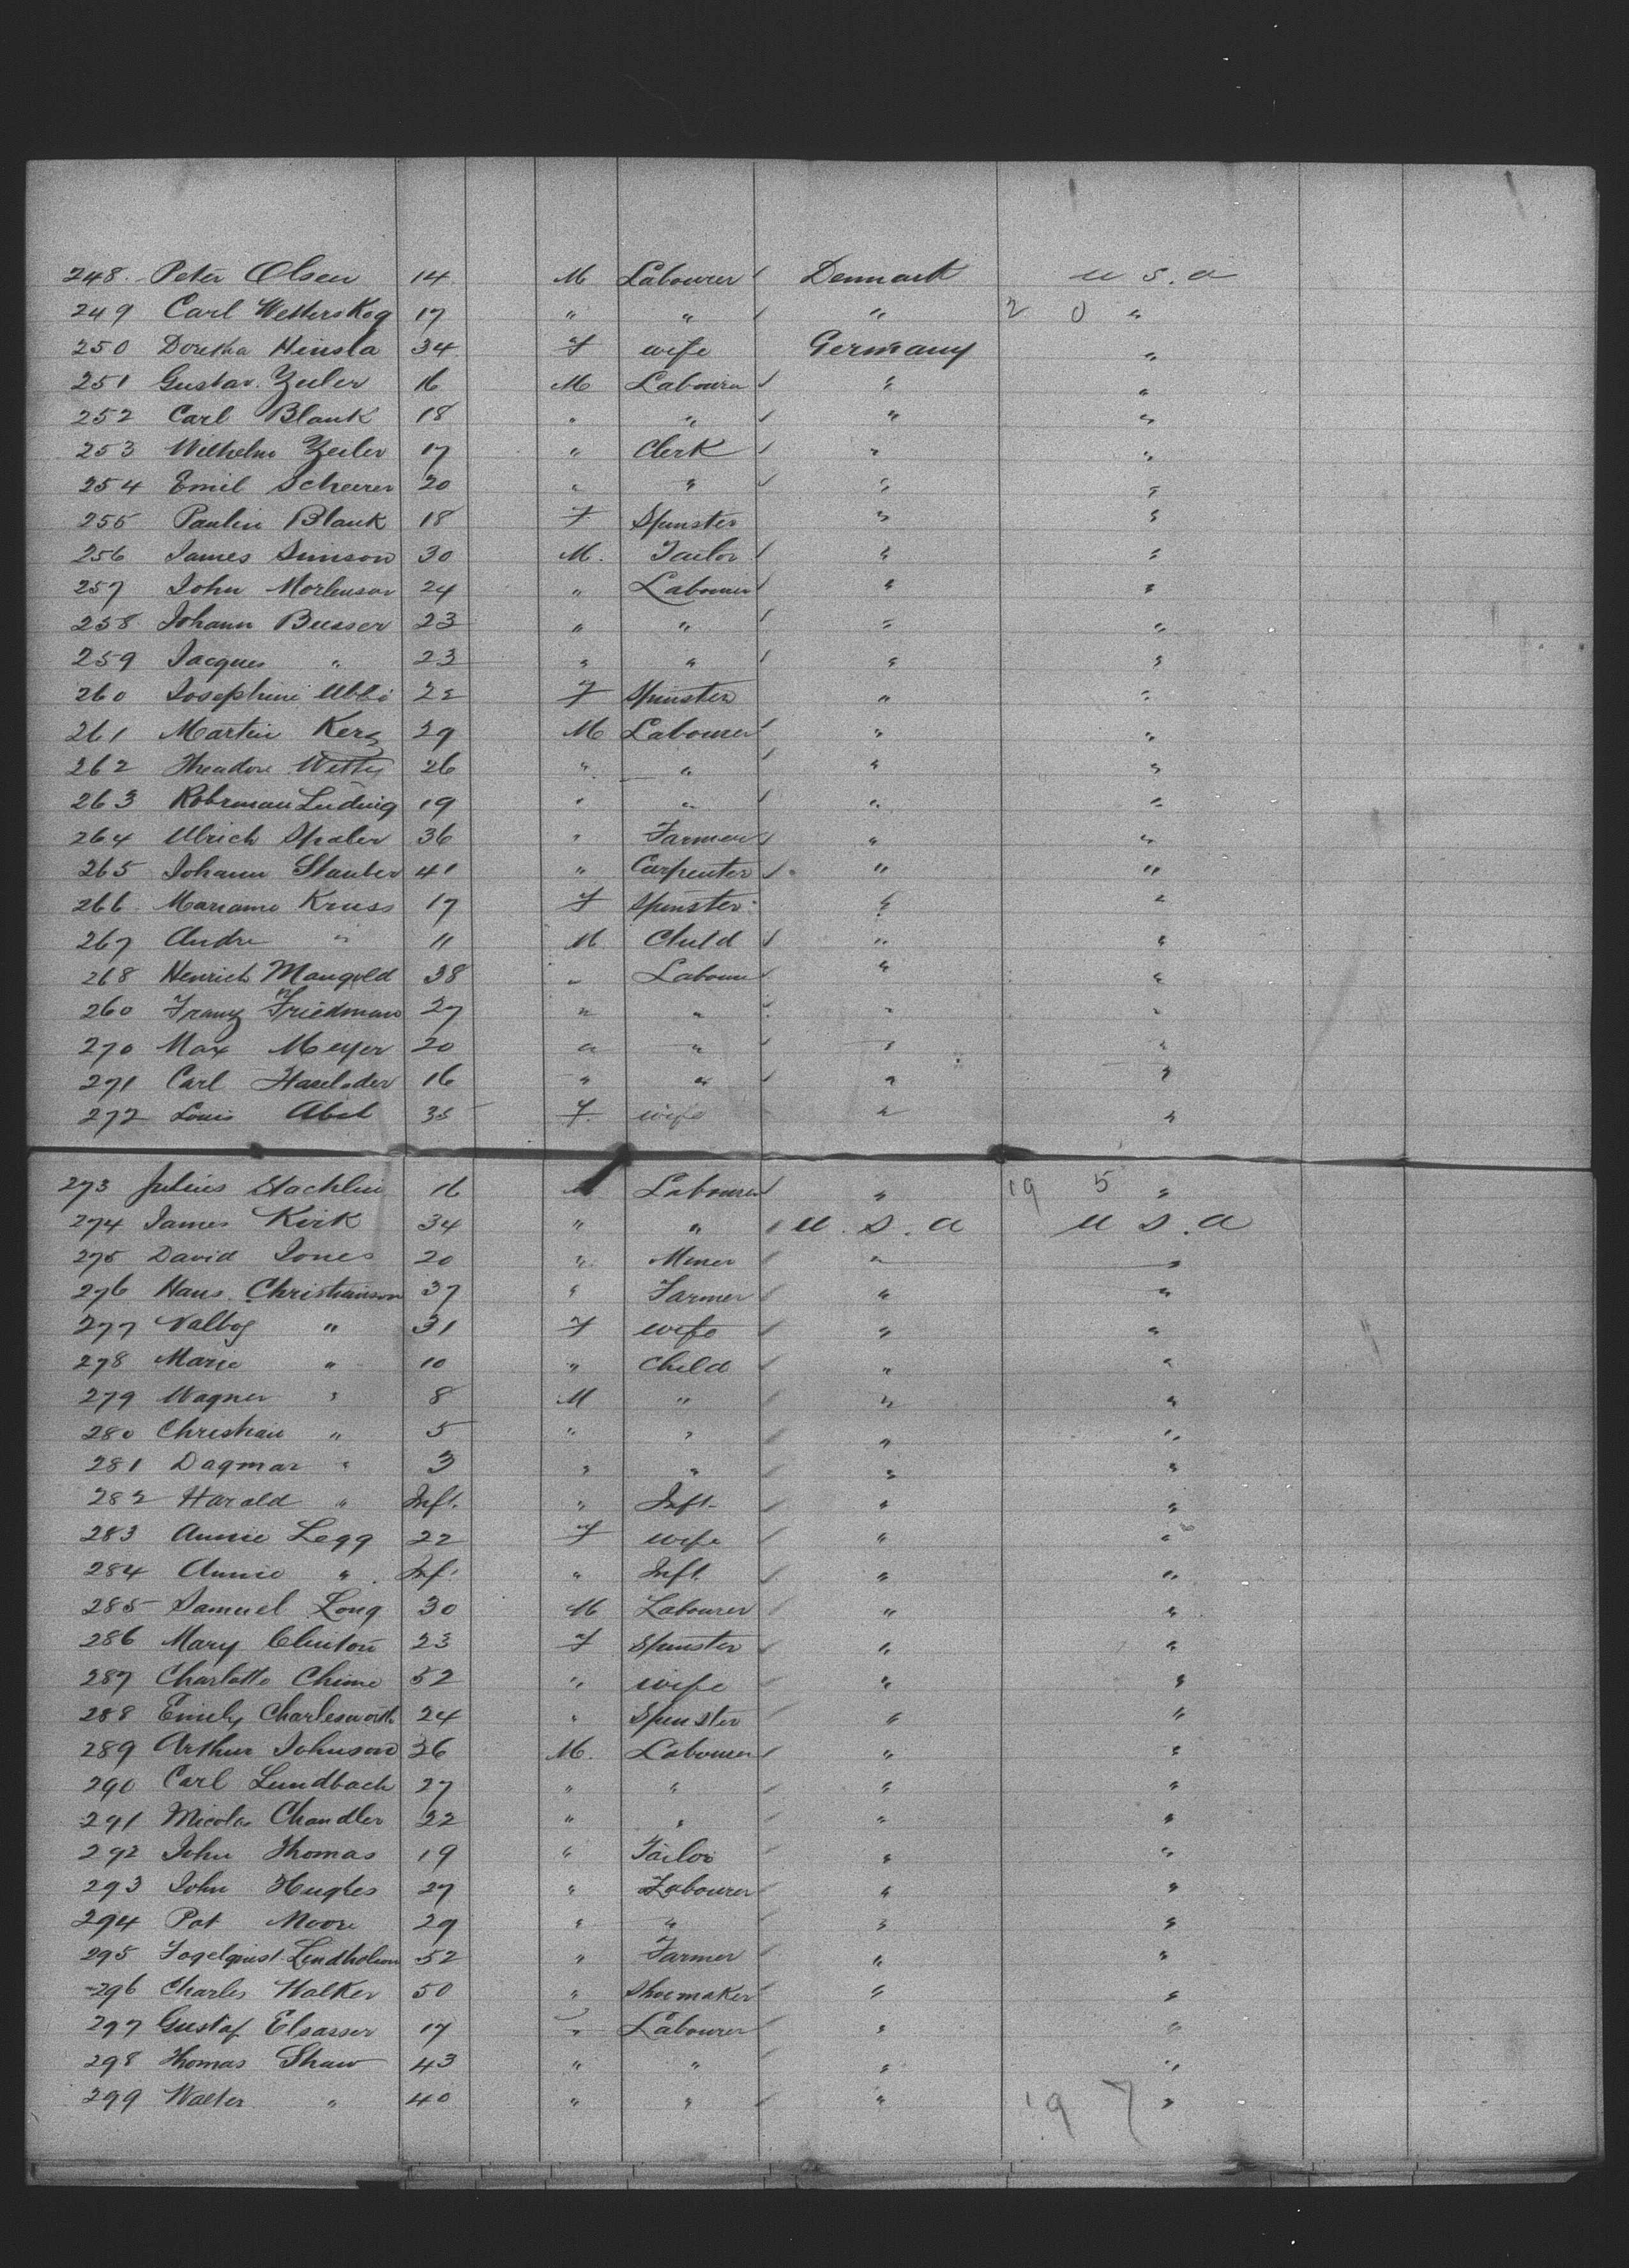 248. Peter Olsen 14 M Labourer Denmark U S. A
249 Carl Wetterskog 17 " " " 2 0 "
250 Doretha Hinsla 34 F wife Germany "
251 Gustav. Zeiler 16 M Labourer " "
252 Carl Blank 18 " " " "
253 Wilhelm Zeiler 17 " Clerk " "
254 Emil Scheerer 20 " " " "
255 Paulin Blank 18 F Spinster " "
256 James Simson 30 M. Tailor " "
257 John Mortenson 24 " Labourer " "
258 Johann Busser 23 " " " "
259 Jacques " 23 " " " "
260 Josephine 22 F Spinster " "
261 Martin Kerz 29 M Labourer " "
262 Theodore 26 " " " "
263 Robrman Ludwig 19 " " " "
264 Ulrich Spaler 36 " Farmer " "
265 Johann Stauber 41 " Carpenter " "
266 Mariame Kruss 17 F Spinster " "
267 Andre " 11 M. Child " "
268 Henrich Mangold 38 " Labourer " "
260 Franz Friedman 27 " " " "
270 Max Meyer 20 " " " "
271 Carl Haseloder 16 " " " "
272 Louis Abel 35 F. wife " "
273 Julius Stachlin 16 M Labourer " 19 5 "
274 James Kirk 34 " " U. S. A U S. A
275 David Jones 20 " Miner " "
276 Hans Christianson 37 " Farmer " "
277 Valbog " 31 F wife " "
278 Marie " 10 " Child " "
279 Wagner " 8 M " " "
280 Christian " 5 " " " "
281 Dagmar " 3 " " " "
282 Harold " Inft. " Inft. " "
283 Annie Legg 22 F wife " "
284 Annie " Inf. " Inft. " "
285 Samuel Long 30 M Labourer " "
286 Mary Clinton 23 F Spinster " "
287 Charlotte Chime 52 " wife " "
288 Emily Charlesworth 24 " Spinster " "
289 Arthur Johnson 26 M. Labourer " "
290 Carl Lundbach 27 " " " "
291 Micola Chandler 22 " " " "
292 John Thomas 19 " Tailor " "
293 John Hughes 27 " Labourer " "
294 Pat Moore 29 " " " "
295 Fogelquist Lindholm 52 " Farmer " "
296 Charles Walker 50 " Shoemaker " "
297 Gustaf Elsasser 17 " Labourer " "
298 Thomas Shaw 43 " " " "
299 Walter " 40 " " " 19 7 "